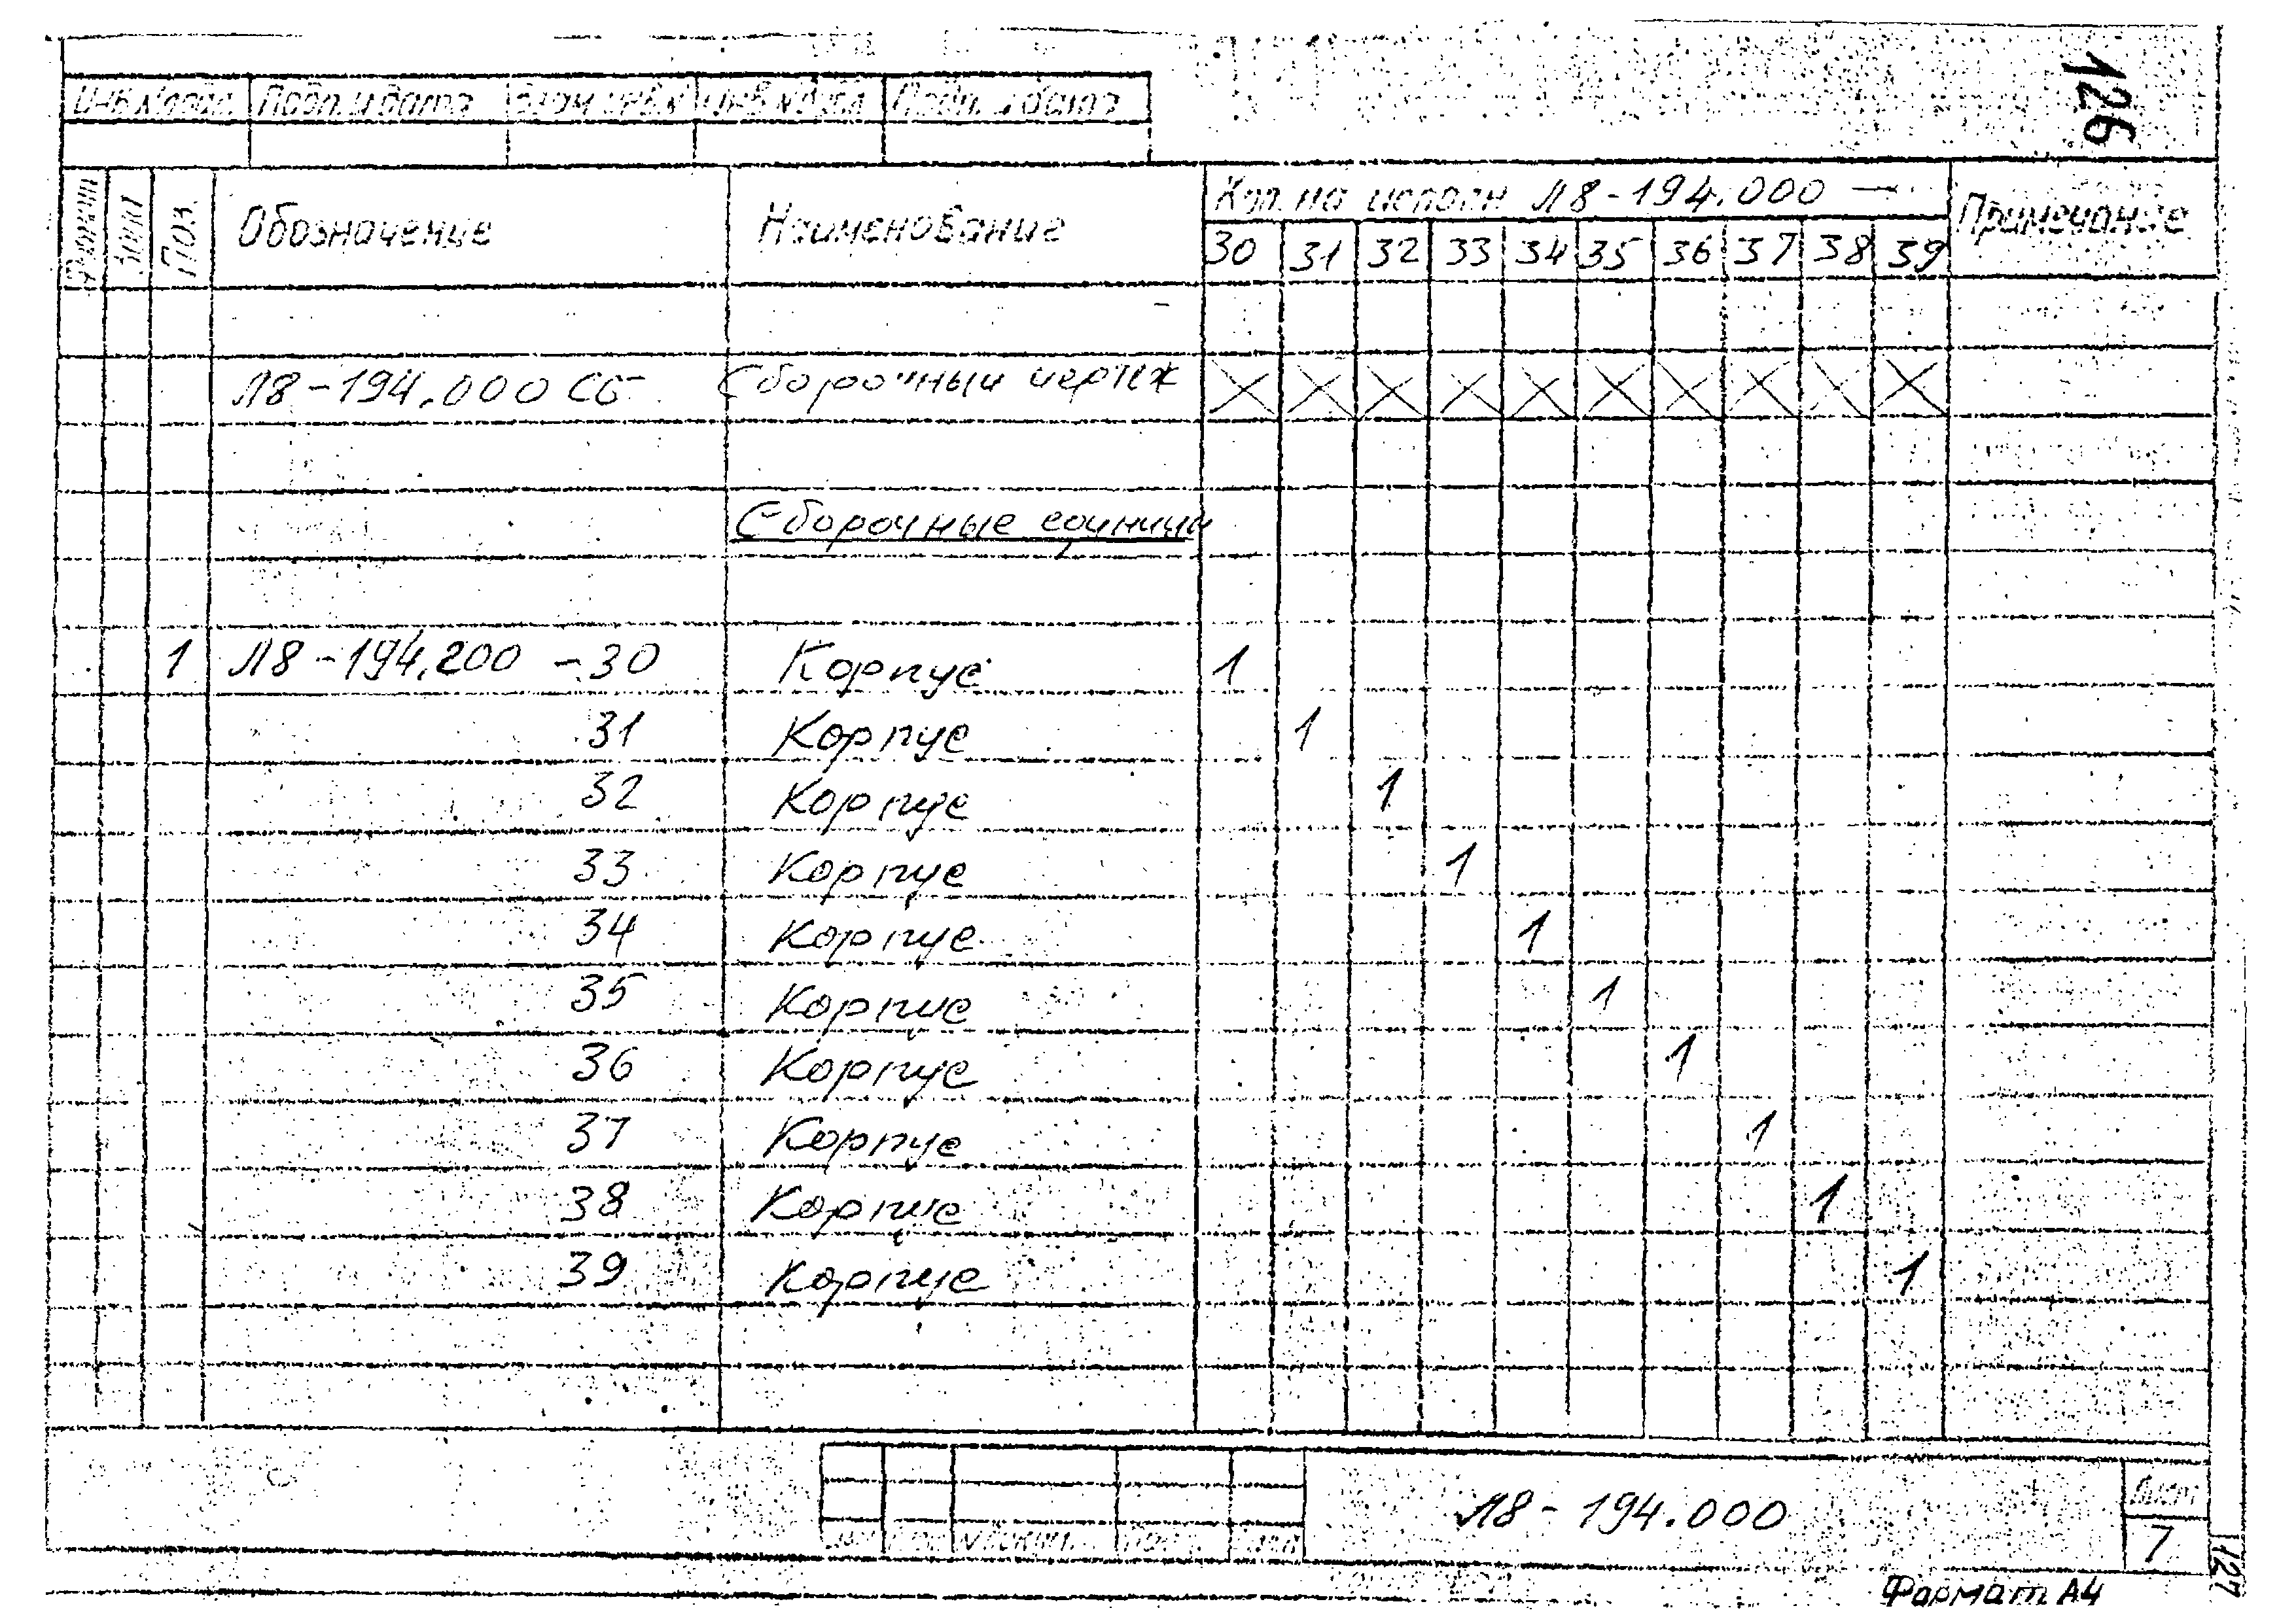 126
Инв.№подл. Подп. и дата Взам.инв.№ Инв.№дубл. Подп. и дата
Формат Зона Поз. Обозначение Наименование Кол. на исполн Л8-194.000 — Примечание
30 31 32 33 34 35 36 37 38 39
Л8-194.000 СБ Сборочный чертеж X X X X X X X X X X
Сборочные единицы
1 Л8-194.200 -30 Корпус 1
31 Корпус 1
32 Корпус 1
33 Корпус 1
34 Корпус 1
35 Корпус 1
36 Корпус 1
37 Корпус 1
38 Корпус 1
39 Корпус 1
Л8-194.000
Лист
7
127
Формат А4